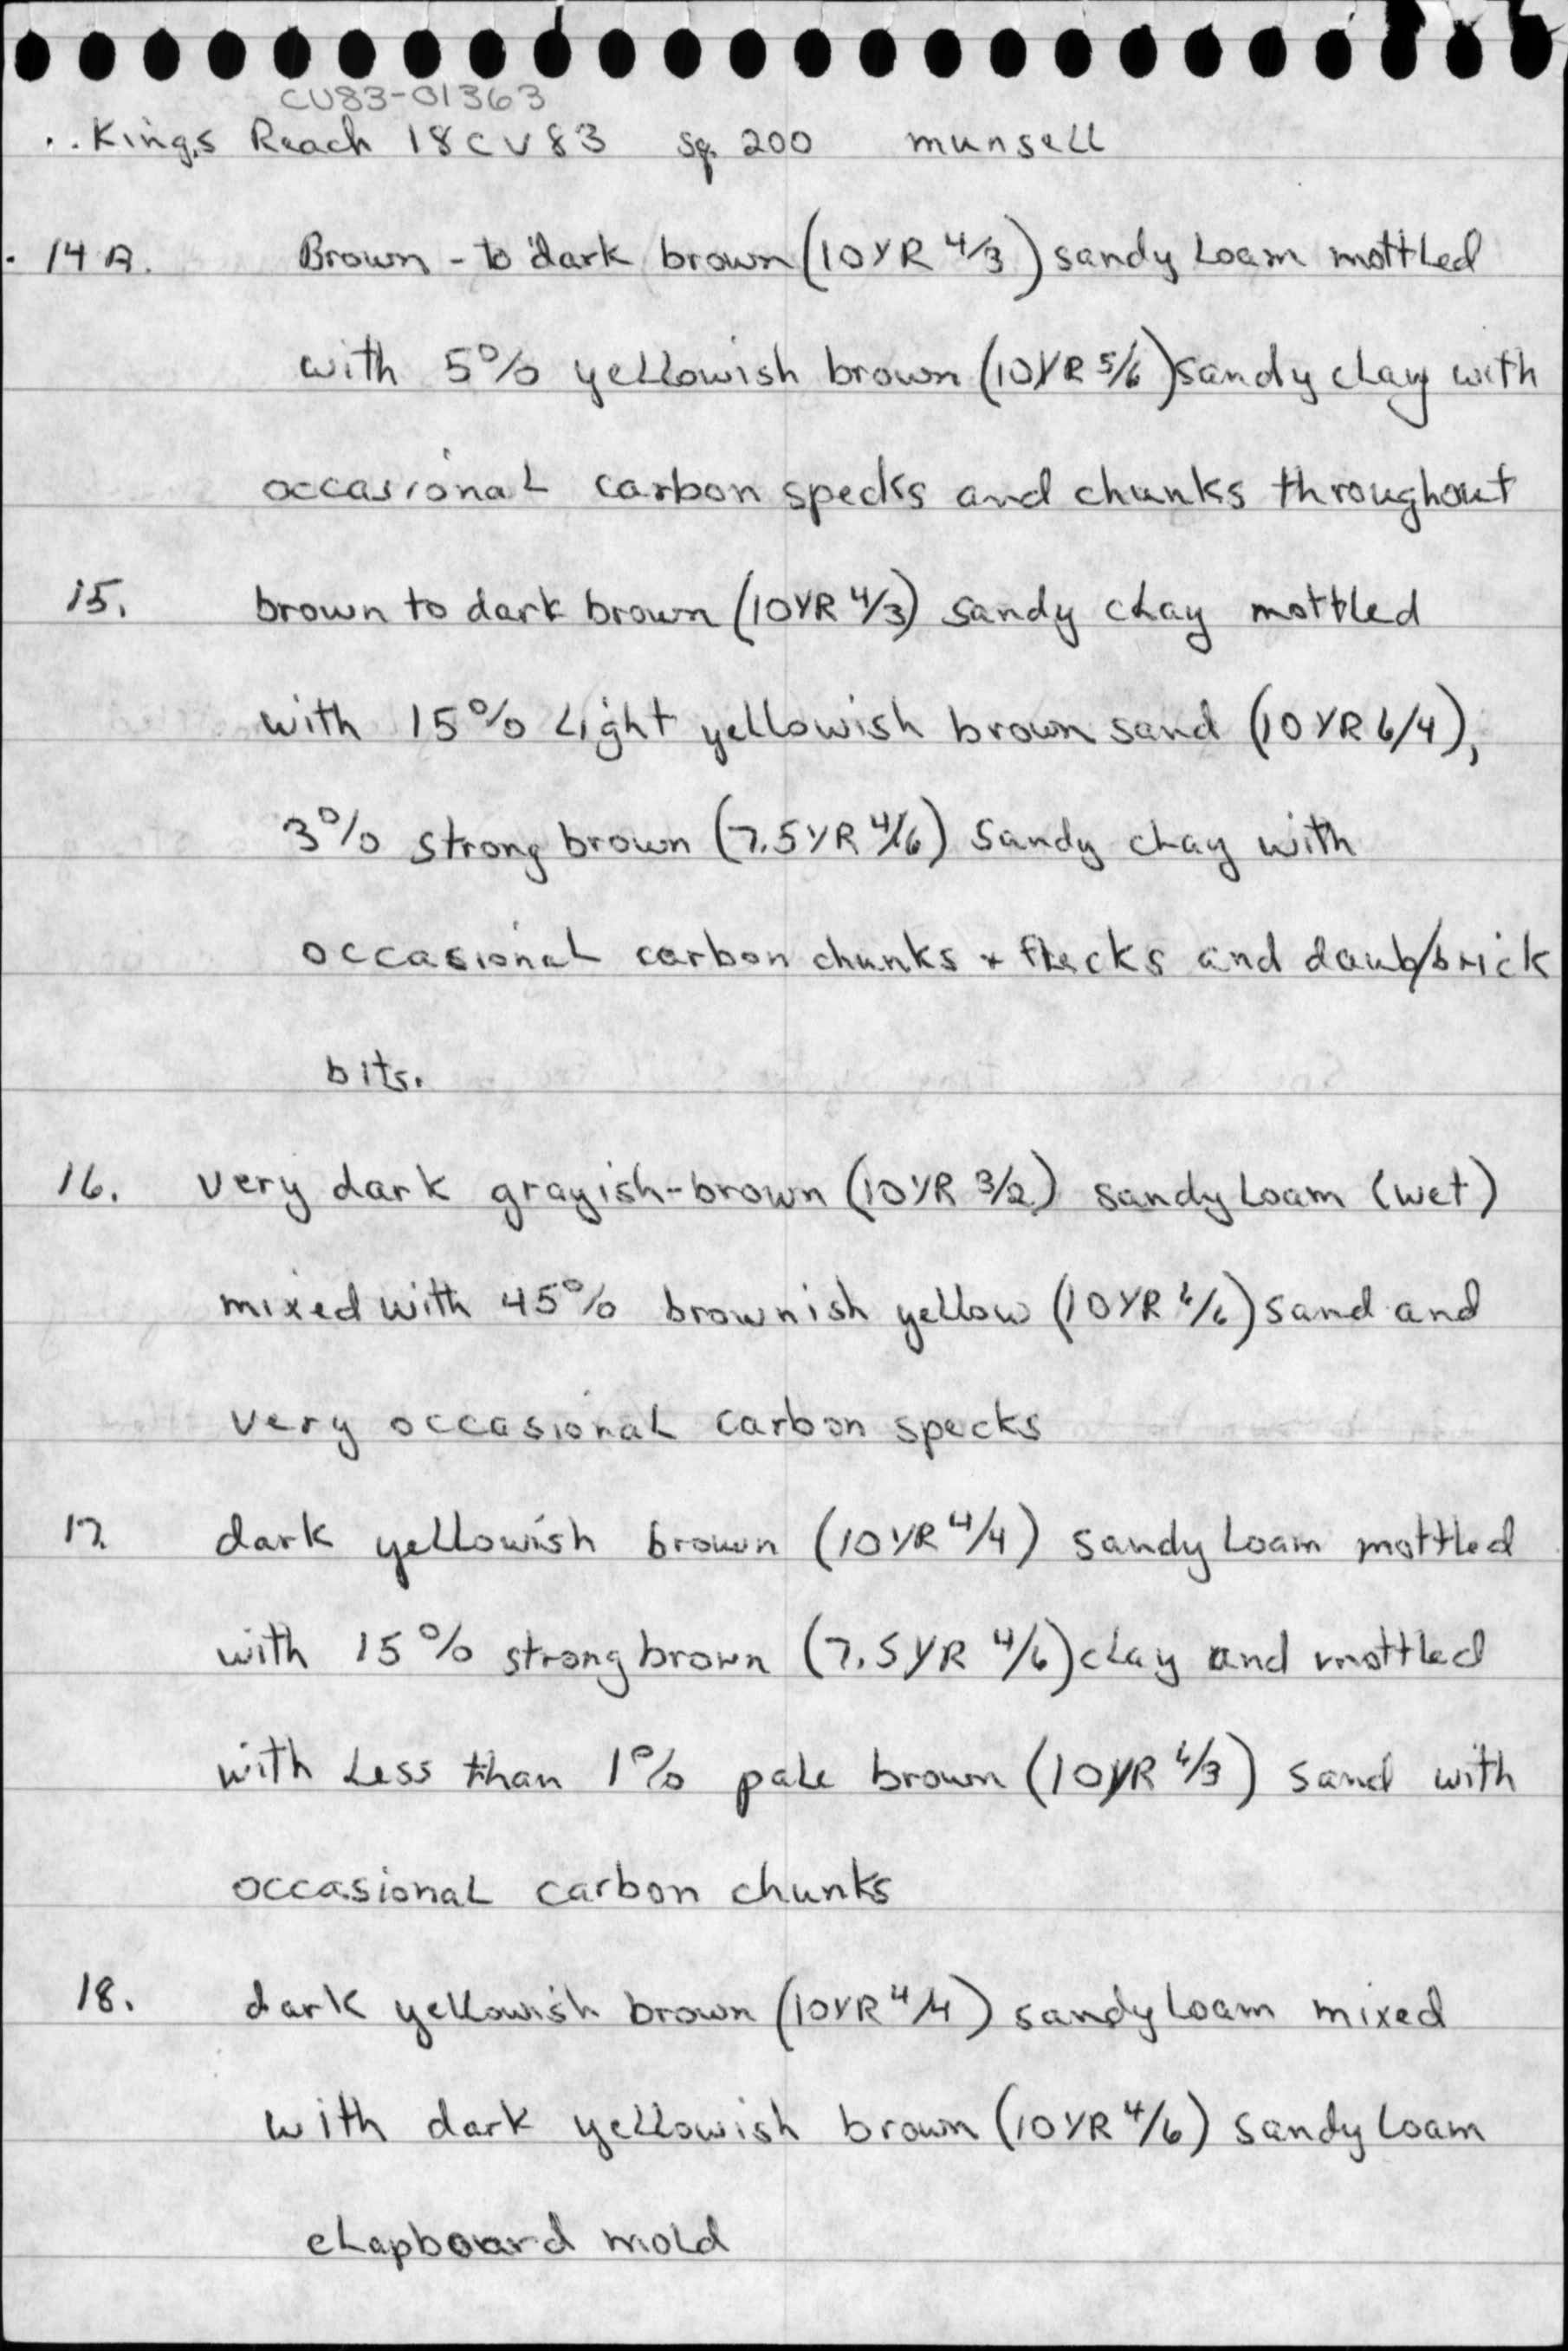 CU83-01363
Kings Reach 18CV83 Sq. 200 munsell
14 A. Brown - to dark brown (10YR 4/3) sandy Loam mottled
with 5% yellowish brown (10YR 5/6) sandy clay with
occasional carbon specks and chunks throughout
15. brown to dark brown (10YR 4/3) sandy clay mottled
with 15% Light yellowish brown sand (10YR 6/4),
3% strong brown (7.5YR 4/6) sandy clay with
occasional carbon chunks + flecks and daub/brick
bits.
16. very dark grayish-brown (10YR 3/2) sandy Loam (wet)
mixed with 45% brownish yellow (10YR 6/6) sand and
very occasional carbon specks
17. dark yellowish brown (10YR 4/4) sandy Loam mottled
with 15% strong brown (7.5YR 4/6) clay and mottled
with Less than 1% pale brown (10YR 6/3) sand with
occasional carbon chunks
18. dark yellowish brown (10YR 4/4) sandy Loam mixed
with dark yellowish brown (10YR 4/6) sandy Loam
clapboard mold